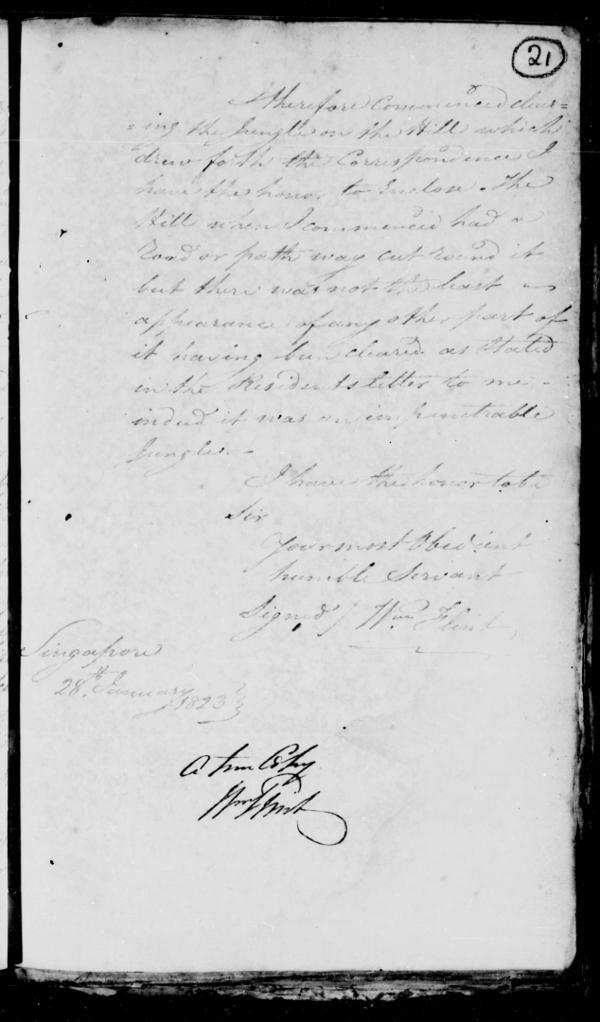 21
I therefore Commenced clear=
=ing the Jungle on the Hill which
drew forth the Correspondence I
have the honor to Enclose. The
Hill when I commenced had a
Road or path way cut round it
but there was not the least
appearance of any other part of
it having been cleared as stated
in the Residents letter to me -
indeed it was an impenetrable
Jungle. -
I have the honor to be
Sir
Your most Obedient
humble Servant
Signed / Wm Flint
Singapore
28th January 1823
A true Copy
Wm Flint